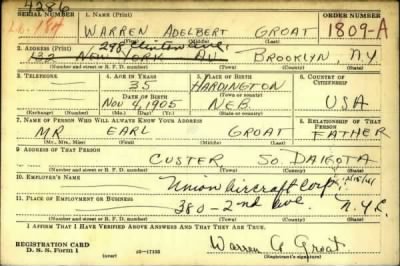 4286
SERIAL NUMBER 1. NAME (Print) ORDER NUMBER
WARREN ADELBERT GROAT 1809-A
(First) (Middle) (Last)
298 Clinton Ave,
2. ADDRESS (Print)
132 NEW YORK AV BROOKLYN N.Y.
(Number and street or R. F. D. number) (Town) (County) (State)
3. TELEPHONE 4. AGE IN YEARS 5. PLACE OF BIRTH 6. COUNTRY OF CITIZENSHIP
35 HARDINGTON
DATE OF BIRTH (Town or county)
NOV 4, 1905 NEB. USA
(Exchange) (Number) (Mo.) (Day) (Yr.) (State or country)
7. NAME OF PERSON WHO WILL ALWAYS KNOW YOUR ADDRESS 8. RELATIONSHIP OF THAT PERSON
MR EARL GROAT FATHER
(Mr., Mrs., Miss) (First) (Middle) (Last)
9. ADDRESS OF THAT PERSON
CUSTER SO. DAKOTA
(Number and street or R. F. D. number) (Town) (County) (State)
10. EMPLOYER'S NAME
Union Aircraft Corp.
11. PLACE OF EMPLOYMENT OR BUSINESS
380-2nd Ave N.Y.C.
(Number and street or R. F. D. number) (Town) (County) (State)
I AFFIRM THAT I HAVE VERIFIED ABOVE ANSWERS AND THAT THEY ARE TRUE.
REGISTRATION CARD
D. S. S. Form 1 (over) Warren A Groat
(Registrant's signature)